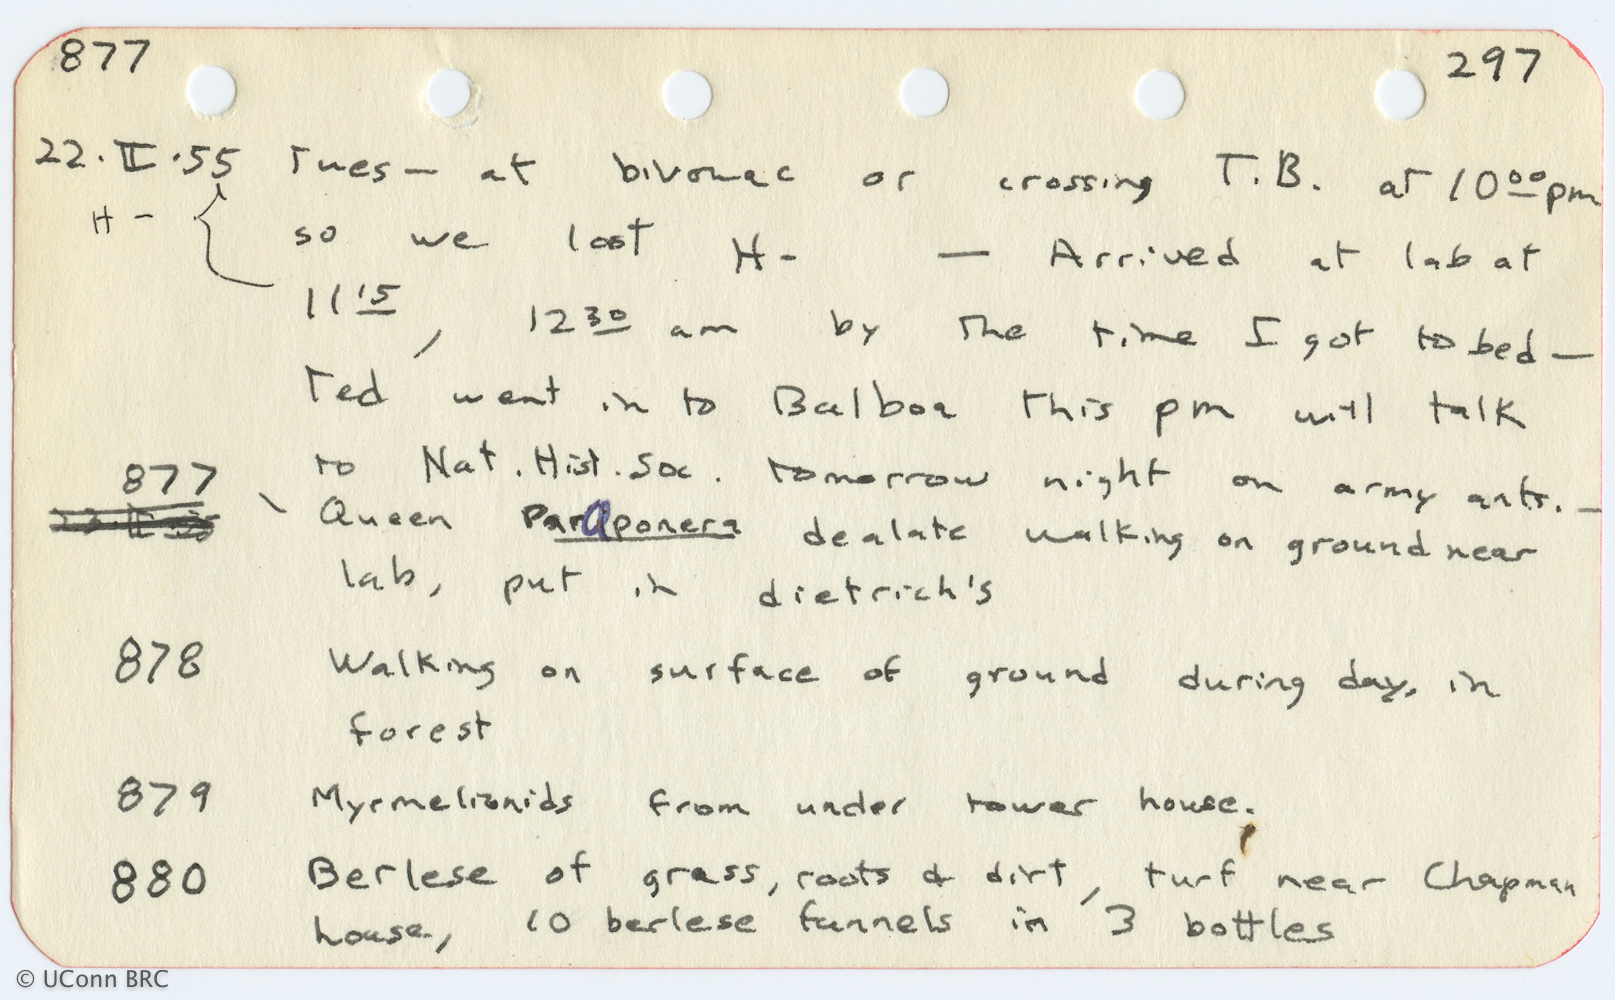 877 297
22.II.55 Tues— at bivouac or crossing T.B. at 10⁰⁰ pm
H - so we lost H- — Arrived at lab at
11¹⁵, 12³⁰ am by the time I got to bed —
Ted went in to Balboa this pm will talk
to Nat. Hist. Soc. tomorrow night on army ants. —
877 Queen Paraponera dealate walking on ground near
lab, put in dietrich's
878 Walking on surface of ground during day, in
forest
879 Myrmelionids from under tower house.
880 Berlese of grass, roots & dirt, turf near Chapman
house, 10 berlese funnels in 3 bottles
© UConn BRC